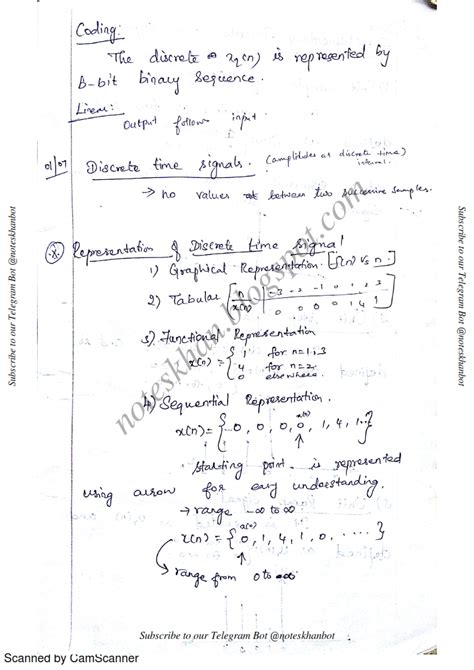 Coding:
The discrete x₂(n) is represented by
B-bit binary sequence.
Linear:
Output follow input
01/07 Discrete time signals. (amplitudes at discrete time) interval.
→ no values between two successive samples.
Representation of Discrete time signal
1) Graphical Representation. [x(n) vs n.]
2) Tabular n -3 -2 -1 0 1 2 3
x(n) 0 0 0 1 4 1
3) Functional Representation
x(n) = { 1 for n=1,3
4 for n=2
0 elsewhere.
4) Sequential Representation.
x(0)
x(n) = {..0, 0, 0, 0, 1, 4, 1...}
↑
starting point is represented
using arrow for easy understanding.
→ range -∞ to ∞
x(0)
x(n) = {0, 1, 4, 1, 0, .....}
↑
→ range from 0 to ∞
noteskhan.blogspot.com
Subscribe to our Telegram Bot @noteskhanbot
Subscribe to our Telegram Bot @noteskhanbot
Subscribe to our Telegram Bot @noteskhanbot
Scanned by CamScanner